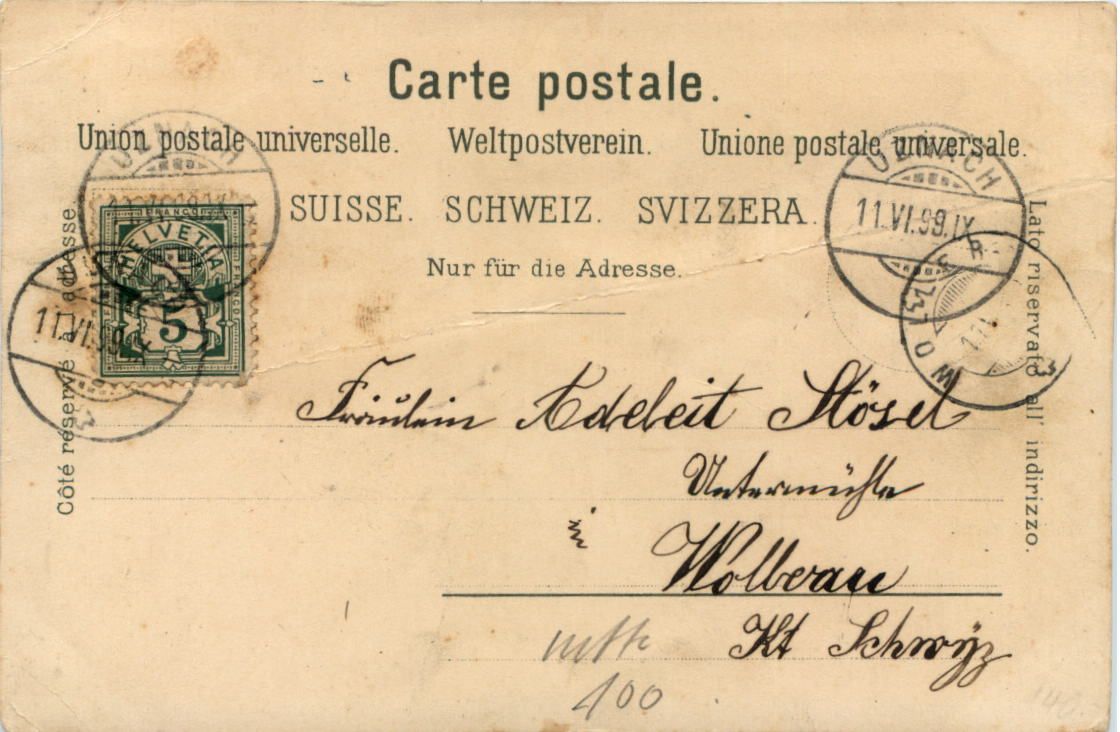 Carte postale.
Union postale universelle. Weltpostverein. Unione postale universale.
SUISSE. SCHWEIZ. SVIZZERA.
Nur für die Adresse.
Côté réservé à l'adresse.
Lato riservato all' indirizzo.
UZNACH
FRANCO
HELVETIA
FRANCO
5
11.VI.99.IX
UZNACH
11.VI.99.IX
WOLLERAU
Fräulein Adeleit Stösel
Untermühle
Wolberau
Kt Schwÿz
100